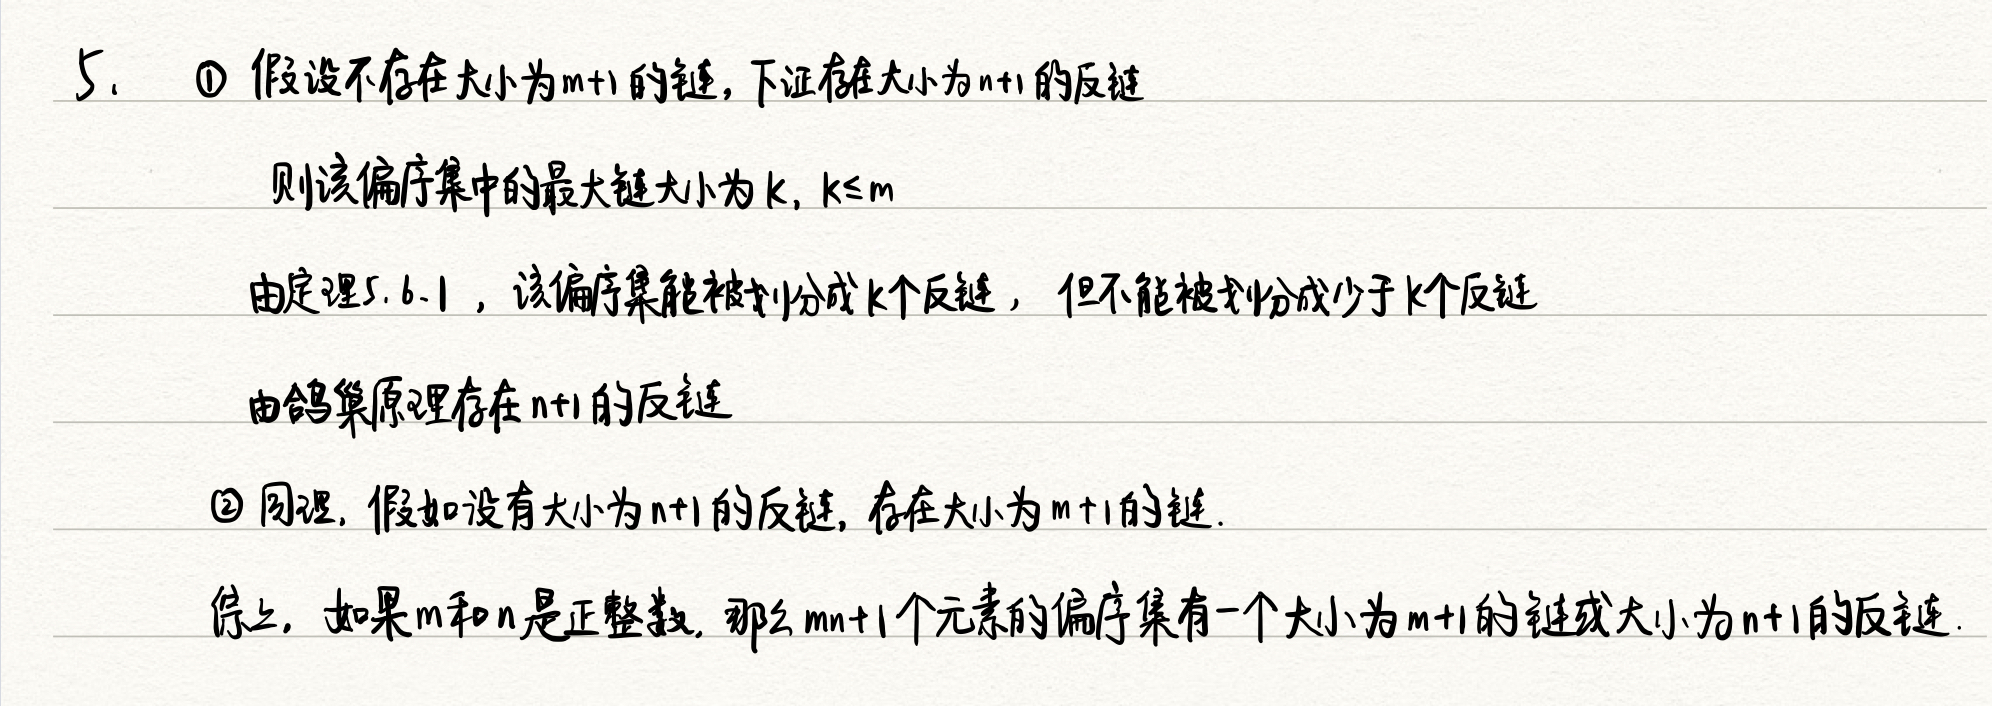 5. ① 假设不存在大小为m+1的链, 下证存在大小为n+1的反链
则该偏序集中的最大链大小为k, k≤m
由定理5.6.1, 该偏序集能被划分成k个反链, 但不能被划分成少于k个反链
由鸽巢原理存在n+1的反链
② 同理, 假如没有大小为n+1的反链, 存在大小为m+1的链.
综上, 如果m和n是正整数, 那么mn+1个元素的偏序集有一个大小为m+1的链或大小为n+1的反链.